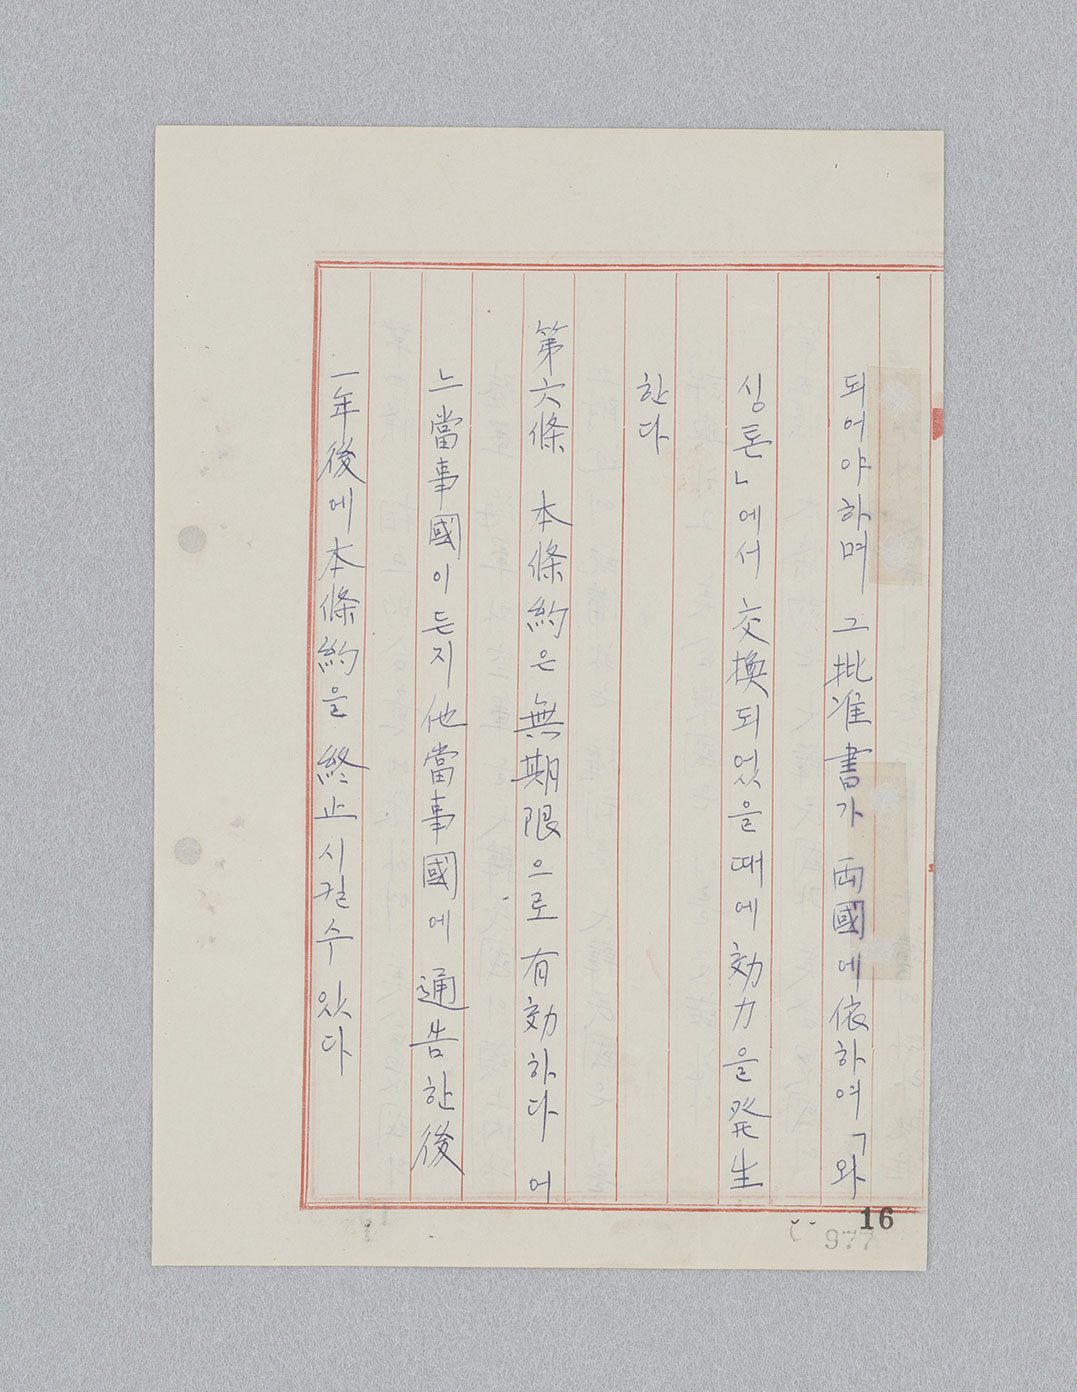 되어야하며 그批准書가 両國에依하여「와
싱톤」에서 交換되었을때에効力을発生
한다
第六條 本條約은無期限으로有効하다 어
느當事國이든지他當事國에 通告한後
一年後에本條約을終止시킬수 있다
16
977